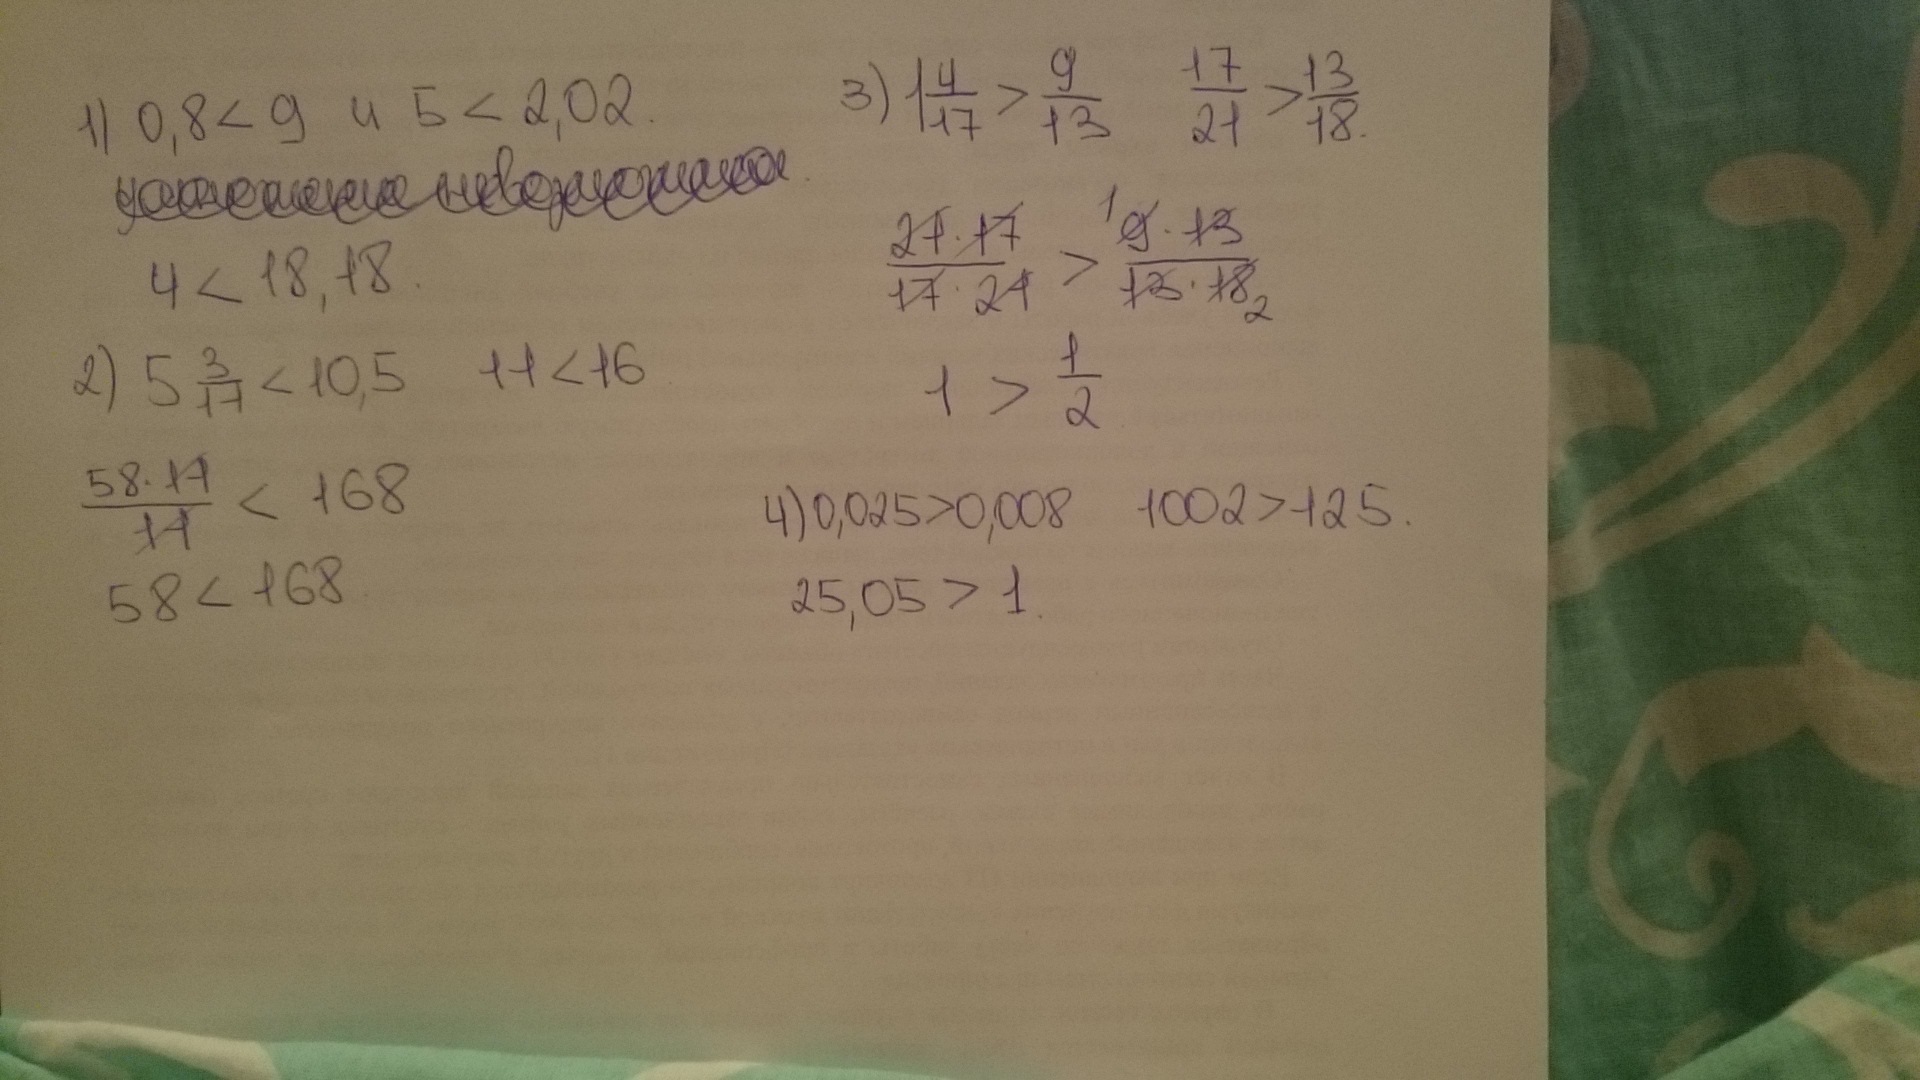 1) 0,8 < 9 и 5 < 2,02.
4 < 18,18.
2) 5 3/17 < 10,5 11 < 16
58·11/11 < 168
58 < 168
3) 1 4/17 > 9/13 17/21 > 13/18.
21·17/17·21 > 1 9·13/13·18 2
1 > 1/2
4) 0,025 > 0,008 1002 > 125.
25,05 > 1.